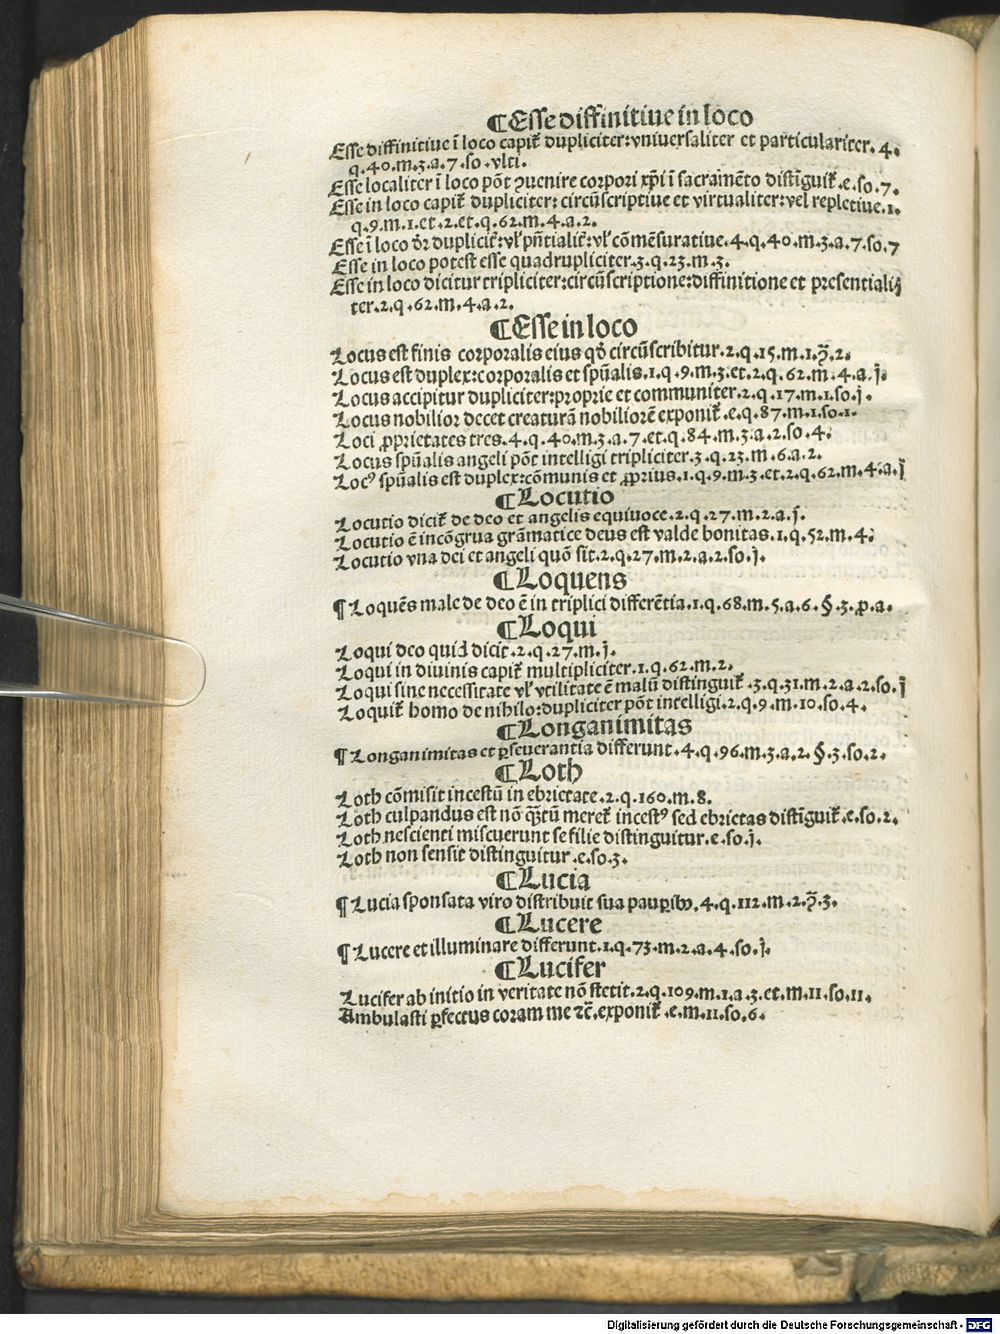 ¶Esse diffinitiue in loco
Esse diffinitiue ī loco capit᷑ dupliciter:vniuersaliter et particulariter.4.
q.40.m.3.a.7.so.vlti.
Esse localiter ī loco põt ꝯuenire corpori xp̄i ī sacramēto distīguit᷑.e.so.7.
Esse in loco capit᷑ dupliciter: circūscriptiue et virtualiter:vel repletiue.1.
q.9.m.1.et.2.et.q.62.m.4.a.2.
Esse ī loco dr̄ duplicit᷑:vl̓ pn̄tialit᷑:vl̓ cōmēsuratiue.4.q.40.m.3.a.7.so.7
Esse in loco potest esse quadrupliciter.3.q.23.m.3.
Esse in loco dicitur tripliciter:circūscriptione:diffinitione et presentiali
ter.2.q.62.m.4.a.2.
¶Esse in loco
Locus est finis corporalis eius qd̄ circūscribitur.2.q.15.m.1.ꝯ̄.2.
Locus est duplex:corporalis et spūalis.1.q.9.m.3.et.2.q.62.m.4.a.j.
Locus accipitur dupliciter:proprie et communiter.2.q.17.m.1.so.j.
Locus nobilior decet creaturā nobiliorē exponit᷑.e.q.87.m.1.so.1.
Loci ꝓprietates tres.4.q.40.m.3.a.7.et.q.84.m.3.a.2.so.4.
Locus spūalis angeli põt intelligi tripliciter.3.q.23.m.6.a.2.
Locꝰ spūalis est duplex:cōmunis et ꝓprius.1.q.9.m.3.et.2.q.62.m.4.a.j
¶Locutio
Locutio dicit᷑ de deo et angelis equiuoce.2.q.27.m.2.a.j.
Locutio ē incōgrua grāmatice deus est valde bonitas.1.q.52.m.4.
Locutio vna dei et angeli quō sit.2.q.27.m.2.a.2.so.j.
¶Loquens
¶Loquēs male de deo ē in triplici differētia.1.q.68.m.5.a.6.§.3.ꝓ.a.
¶Loqui
Loqui deo quid dicit.2.q.27.m.j.
Loqui in diuinis capit᷑ multipliciter.1.q.62.m.2.
Loqui sine necessitate vl̓ vtilitate ē malū distinguit᷑.3.q.31.m.2.a.2.so.j
Loquit᷑ homo de nihilo:dupliciter põt intelligi.2.q.9.m.10.so.4.
¶Longanimitas
¶Longanimitas et ꝑseuerantia differunt.4.q.96.m.3.a.2.§.3.so.2.
¶Loth
Loth cōmisit incestū in ebrietate.2.q.160.m.8.
Loth culpandus est nō q̄tū meret᷑ incestꝰ sed ebrietas distīguit᷑.e.so.2.
Loth nescienti miscuerunt se filie distinguitur.e.so.j.
Loth non sensit distinguitur.e.so.3.
¶Lucia
¶Lucia sponsata viro distribuit sua pauꝑibꝰ.4.q.112.m.2.ꝯ̄.3.
¶Lucere
¶Lucere et illuminare differunt.1.q.73.m.2.a.4.so.j.
¶Lucifer
Lucifer ab initio in veritate nō stetit.2.q.109.m.1.a.3.et.m.11.so.11.
Ambulasti ꝑfectus coram me ⁊c̄.exponit᷑.e.m.11.so.6.
Digitalisierung gefördert durch die Deutsche Forschungsgemeinschaft - DFG